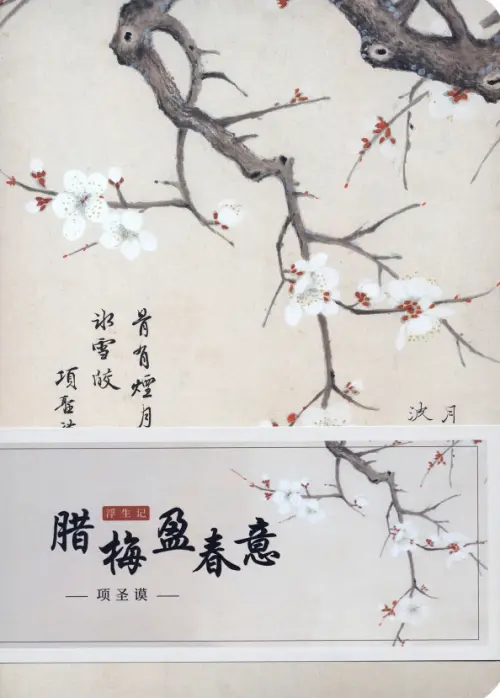 月
波
有煙月
冰雪皎
項聖
浮生记
腊梅盈春意
项圣谟